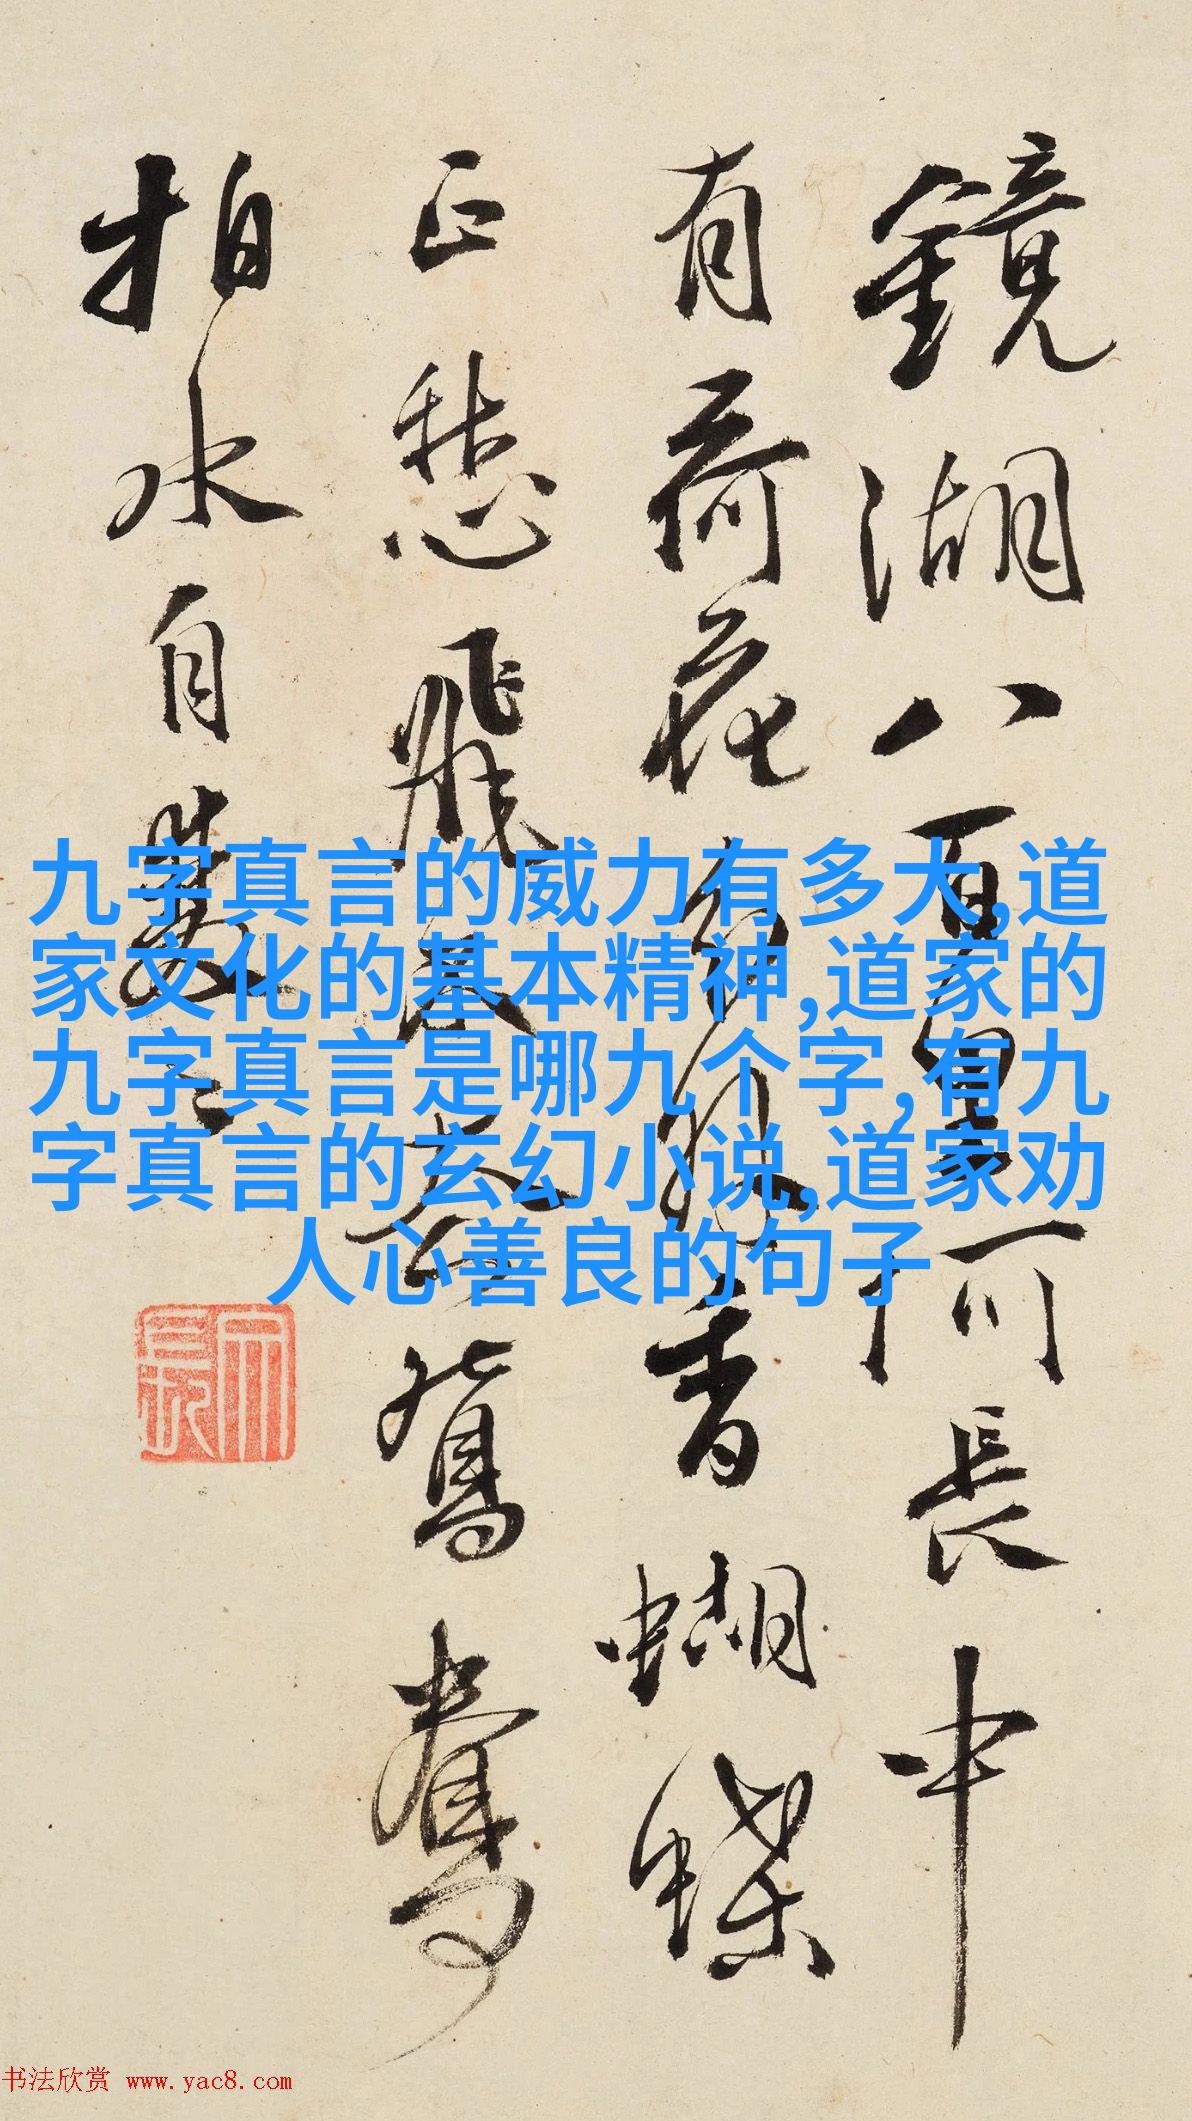 鏡湖八百里何長中
有荷花分外香蝴蝶
正愁飛不過鴛鴦
拍水自雙〻
九字真言的威力有多大,道
家文化的基本精神,道家的
九字真言是哪九个字,有九
字真言的玄幻小说,道家劝
人心善良的句子
书法欣赏 www.yac8.com